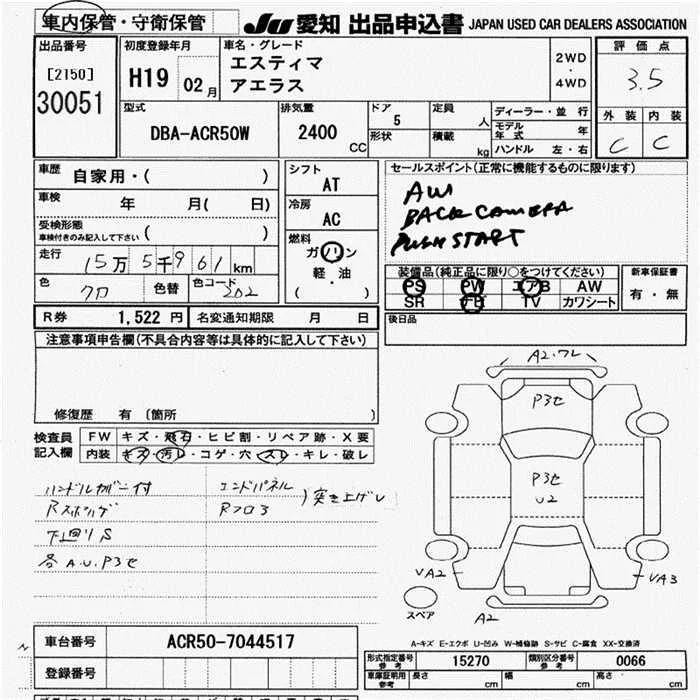 車内保管・守衛保管
JU 愛知 出品申込書 JAPAN USED CAR DEALERS ASSOCIATION
出品番号
[2150]
30051
初度登録年月
H19 02 月
車名・グレード
エスティマ
アエラス
2WD
・
4WD
評価点
3.5
外装 内装
C C
型式
DBA-ACR50W
排気量
2400
CC
ドア
5
形状
定員
人
積載
kg
ディーラー・並行
モデル年式 年
ハンドル 左・右
車歴
自家用・( )
車検
年 月( 日)
受検形態
車検付きのみ記入して下さい ( )
走行
15万 5千9 61 km
色
クロ
色替
色コード
202
シフト
AT
冷房
AC
燃料
ガソリン
軽・油
( )
セールスポイント(正常に機能するものに限ります)
AW
BACK CAMERA
PUSH START
装備品(純正品に限り○をつけてください)
PS PW エアB AW
SR ナビ TV カワシート
新車保証書
有・無
後日品
R券 1,522 円 名変通知期限 月 日
注意事項申告欄(不具合内容等は具体的に記入して下さい)
修復歴 有 〔箇所 〕
検査員
記入欄
FW キズ・飛石・ヒビ割・リペア跡・X要
内装 キズ・汚レ・コゲ・穴・スレ・キレ・破レ
ハンドルカバー付
下回りS
各A.U.Pヨセ
エンドパネル
Rフロア
突き上げ
A2.ワレ
Pヨセ
Pヨセ
U2
VA2
VA3
A2
スペア
A-キズ E-エクボ U-凹み W-補修跡 S-サビ C-腐食 XX-交換済
車台番号 ACR50-7044517
登録番号
形式指定番号 参考 15270 類別区分番号 参考 0066
車庫証明用 参考 長さ cm 幅 cm 高さ cm